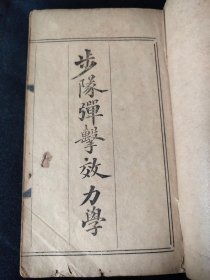 步隊彈擊效力學